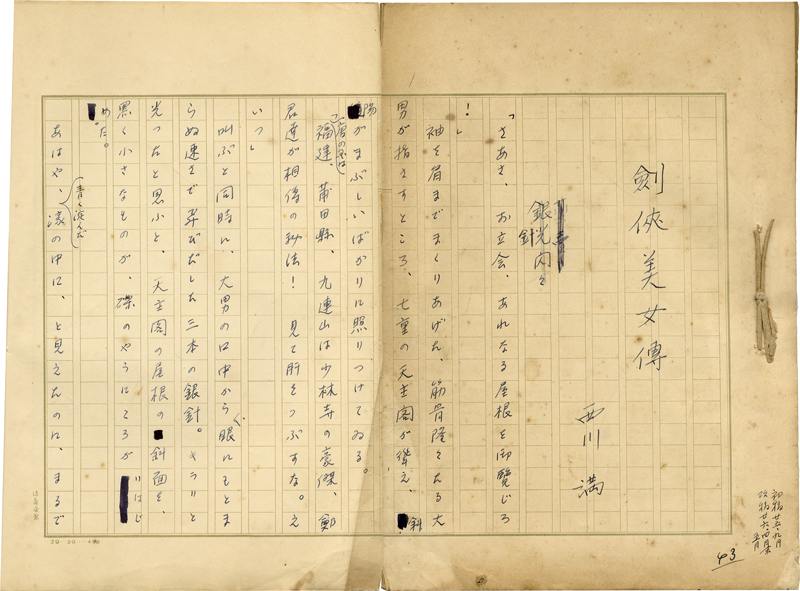 劍俠美女傳
西川 満
銀光閃々
針
「さあさ、お立会、あれなる屋根を御覧じろ
！」
袖を肩までまくりあげた、筋骨隆々たる大
男が指さすところ、七重の天主閣が聳え、斜
陽がまぶしいばかりに照りつけてゐる。
「唐の国は
福建、莆田縣、九連山は少林寺の豪傑、鄭
君達が相傳の秘法！　見て肝をつぶすな。え
いっ」
叫ぶと同時に、大男の口中から、眼にもとま
らぬ速さで飛びだした三本の銀針。キラリと
光つたと思ふと、天主閣の屋根の斜面を、
黒く小さなものが、礫のやうにころがりはじ
めた。
青く淀んだ
あはや、濠の中に、と見えたのに、まるで
初稿廿五、九月
改稿廿六、四月末
五月
43
20・20